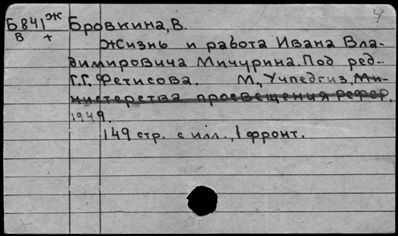 4
Б841ж Бровкина, В.
В +
Жизнь и работа Ивана Вла-
димировича Мичурина. Под ред..
Г.Г. Фетисова. М., Учпедгиз, Ми-
нистерства просвещения РСФСР,
1949.
149 стр. с илл., 1 фронт.